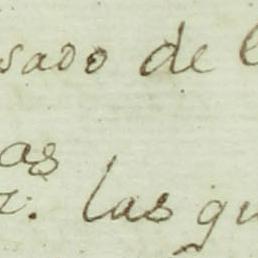 sado de l
as
z. las qu